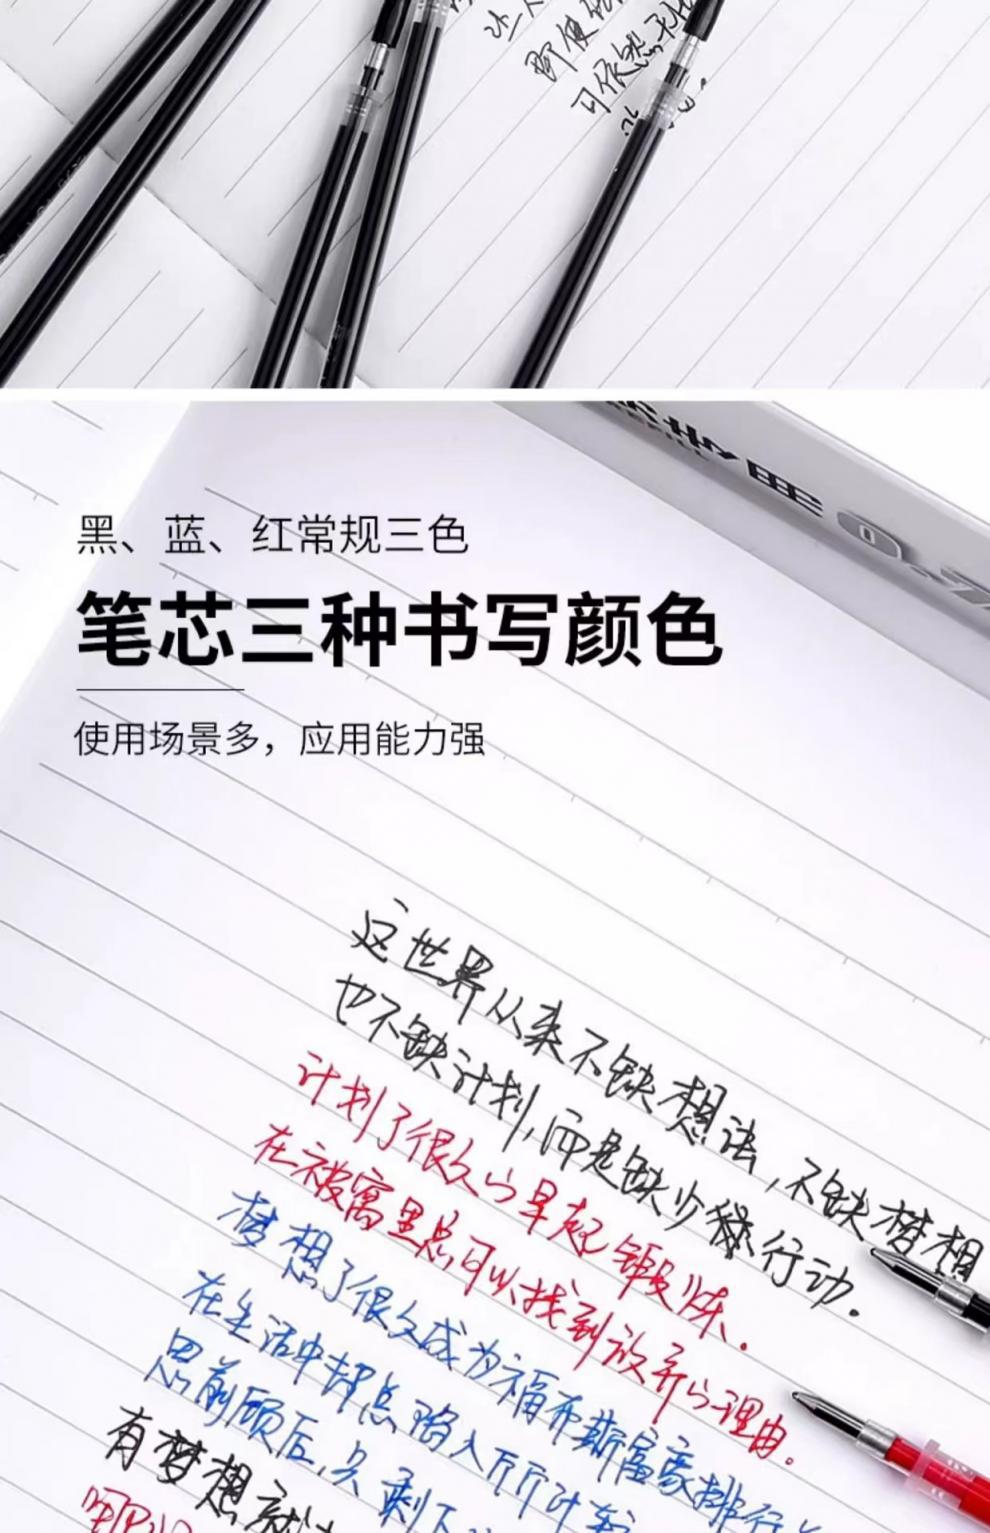 即使
可依然
黑、蓝、红常规三色
笔芯三种书写颜色
使用场景多，应用能力强
0.7
这世界从来不缺想法，不缺梦想
也不缺计划，而是缺少行动。
计划了很久的早起锻炼。
在被窝里总可以找到放弃的理由。
梦想了很久成为福布斯富豪排行
在生活中却总陷入斤斤计较
思前顾后，只剩下
有梦想就